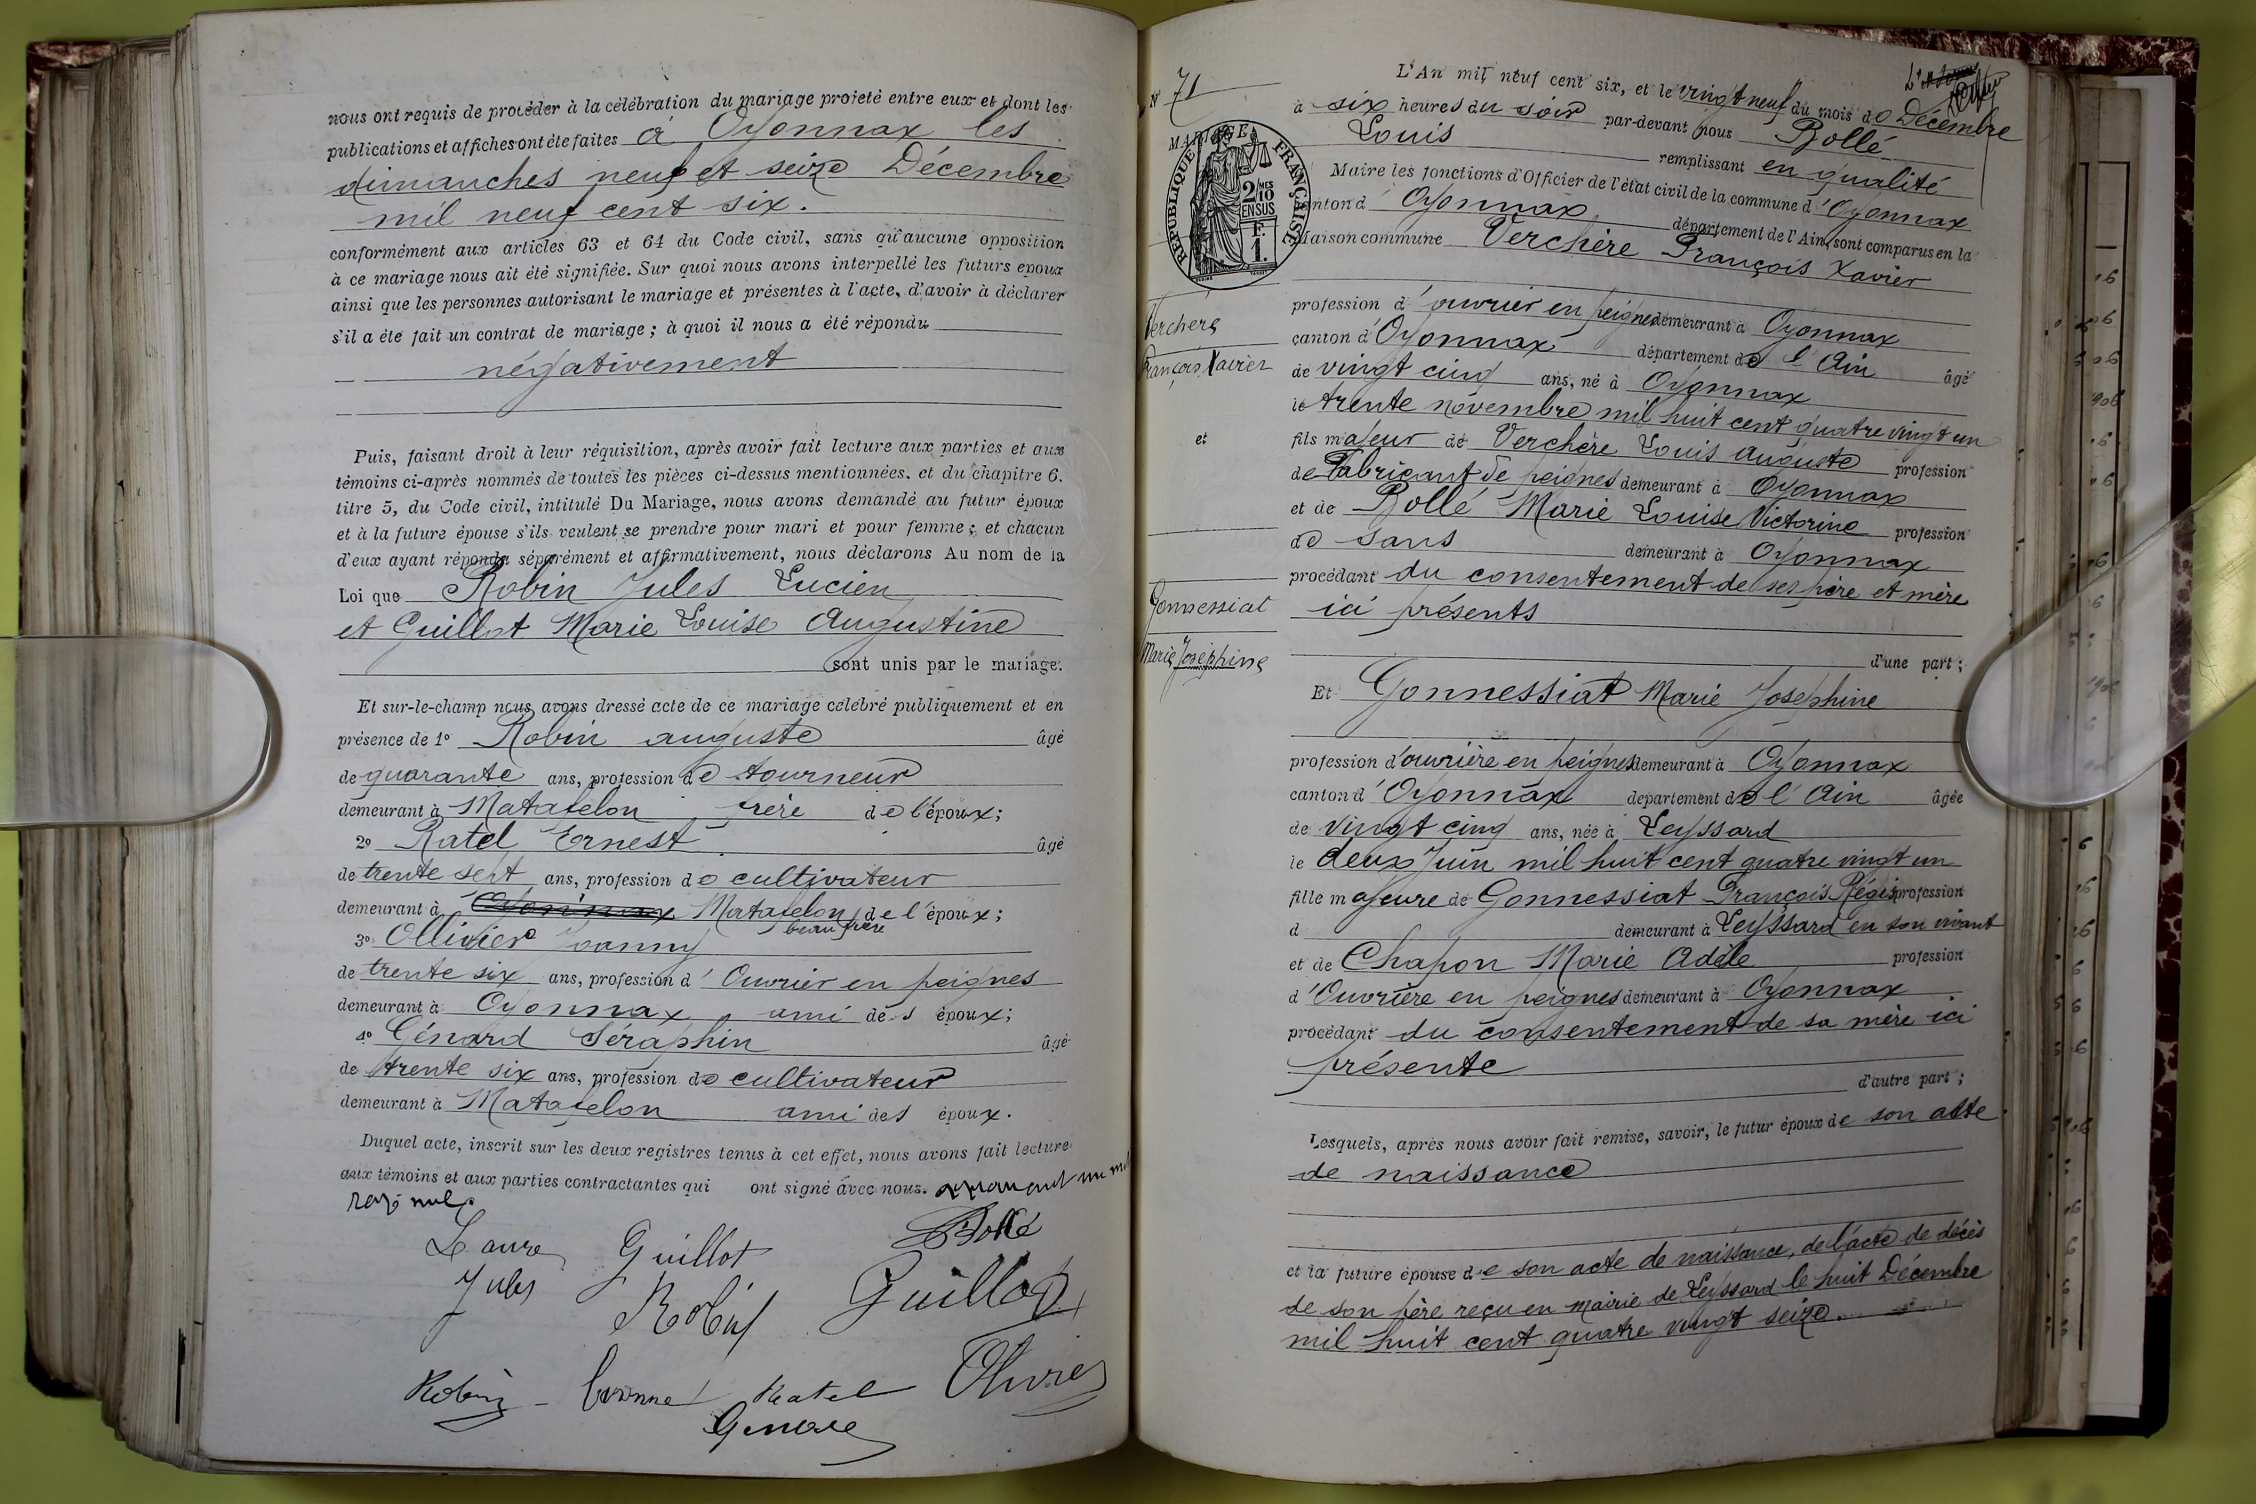 nous ont requis de procéder à la célébration du mariage projeté entre eux et dont les
publications et affiches ont été faites à Oyonnax les
dimanches neuf et seize Décembre
mil neuf cent six.
conformément aux articles 63 et 64 du Code civil, sans qu'aucune opposition
à ce mariage nous ait été signifiée. Sur quoi nous avons interpellé les futurs époux
ainsi que les personnes autorisant le mariage et présentes à l'acte, d'avoir à déclarer
s'il a été fait un contrat de mariage ; à quoi il nous a été répondu
négativement
Puis, faisant droit à leur réquisition, après avoir fait lecture aux parties et aux
témoins ci-après nommés de toutes les pièces ci-dessus mentionnées, et du chapitre 6.
titre 5, du Code civil, intitulé Du Mariage, nous avons demandé au futur époux
et à la future épouse s'ils veulent se prendre pour mari et pour femme ; et chacun
d'eux ayant répondu séparément et affirmativement, nous déclarons Au nom de la
Loi que Robin Jules Lucien
et Guillot Marie Louise Augustine
sont unis par le mariage.
Et sur-le-champ nous avons dressé acte de ce mariage célébré publiquement et en
présence de 1° Robin auguste âgé
de quarante ans, profession de tourneur
demeurant à Matafelon frère de l'époux ;
2° Ratel Ernest âgé
de trente sept ans, profession de cultivateur
demeurant à Oyonnax Matafelon, de l'époux ;
beau frère
3° Ollivier Joanny
de trente six ans, profession d'Ouvrier en peignes
demeurant à Oyonnax ami des époux ;
4° Génard Séraphin âgé
de trente six ans, profession de cultivateur
demeurant à Matafelon ami des époux.
Duquel acte, inscrit sur les deux registres tenus à cet effet, nous avons fait lecture
aux témoins et aux parties contractantes qui ont signé avec nous. approuvant un mot
rayé nul.
Laure Guillot Bollé
Jules Robin Guillot
Robin Ratel Olivier
Genard
N° 71
MARIAGE
RÉPUBLIQUE FRANÇAISE
2/10 MES
EN SUS
F.
1.
Verchère
François Xavier
et
Gonnessiat
Marie Joséphine
L'An mil neuf cent six, et le vingt neuf du mois de Décembre
à six heures du soir par-devant nous Bollé
Louis remplissant en qualité
Maire les fonctions d'Officier de l'état civil de la commune d'Oyonnax
canton d'Oyonnax département de l'Ain, sont comparus en la
Maison commune Verchère François Xavier
profession d'ouvrier en peignes demeurant à Oyonnax
canton d'Oyonnax département de l'Ain âgé
de vingt cinq ans, né à Oyonnax
le trente novembre mil huit cent quatre vingt un
fils majeur de Verchère Louis Auguste profession
de Fabricant de peignes demeurant à Oyonnax
et de Bollé Marie Louise Victorine profession
de sans demeurant à Oyonnax
procédant du consentement de ses père et mère
ici présents
d'une part ;
Et Gonnessiat Marie Josephine
profession d'ouvrière en peignes demeurant à Oyonnax
canton d'Oyonnax département de l'Ain âgée
de vingt cinq ans, née à Leyssard
le deux Juin mil huit cent quatre vingt un
fille majeure de Gonnessiat François Régis profession
d demeurant à Leyssard en son vivant
et de Chapon Marie Adèle profession
d'Ouvrière en peignes demeurant à Oyonnax
procédant du consentement de sa mère ici
présente
d'autre part ;
Lesquels, après nous avoir fait remise, savoir, le futur époux de son acte
de naissance
et la future épouse de son acte de naissance, de l'acte de décès
de son père reçu en mairie de Leyssard le huit Décembre
mil huit cent quatre vingt seize.